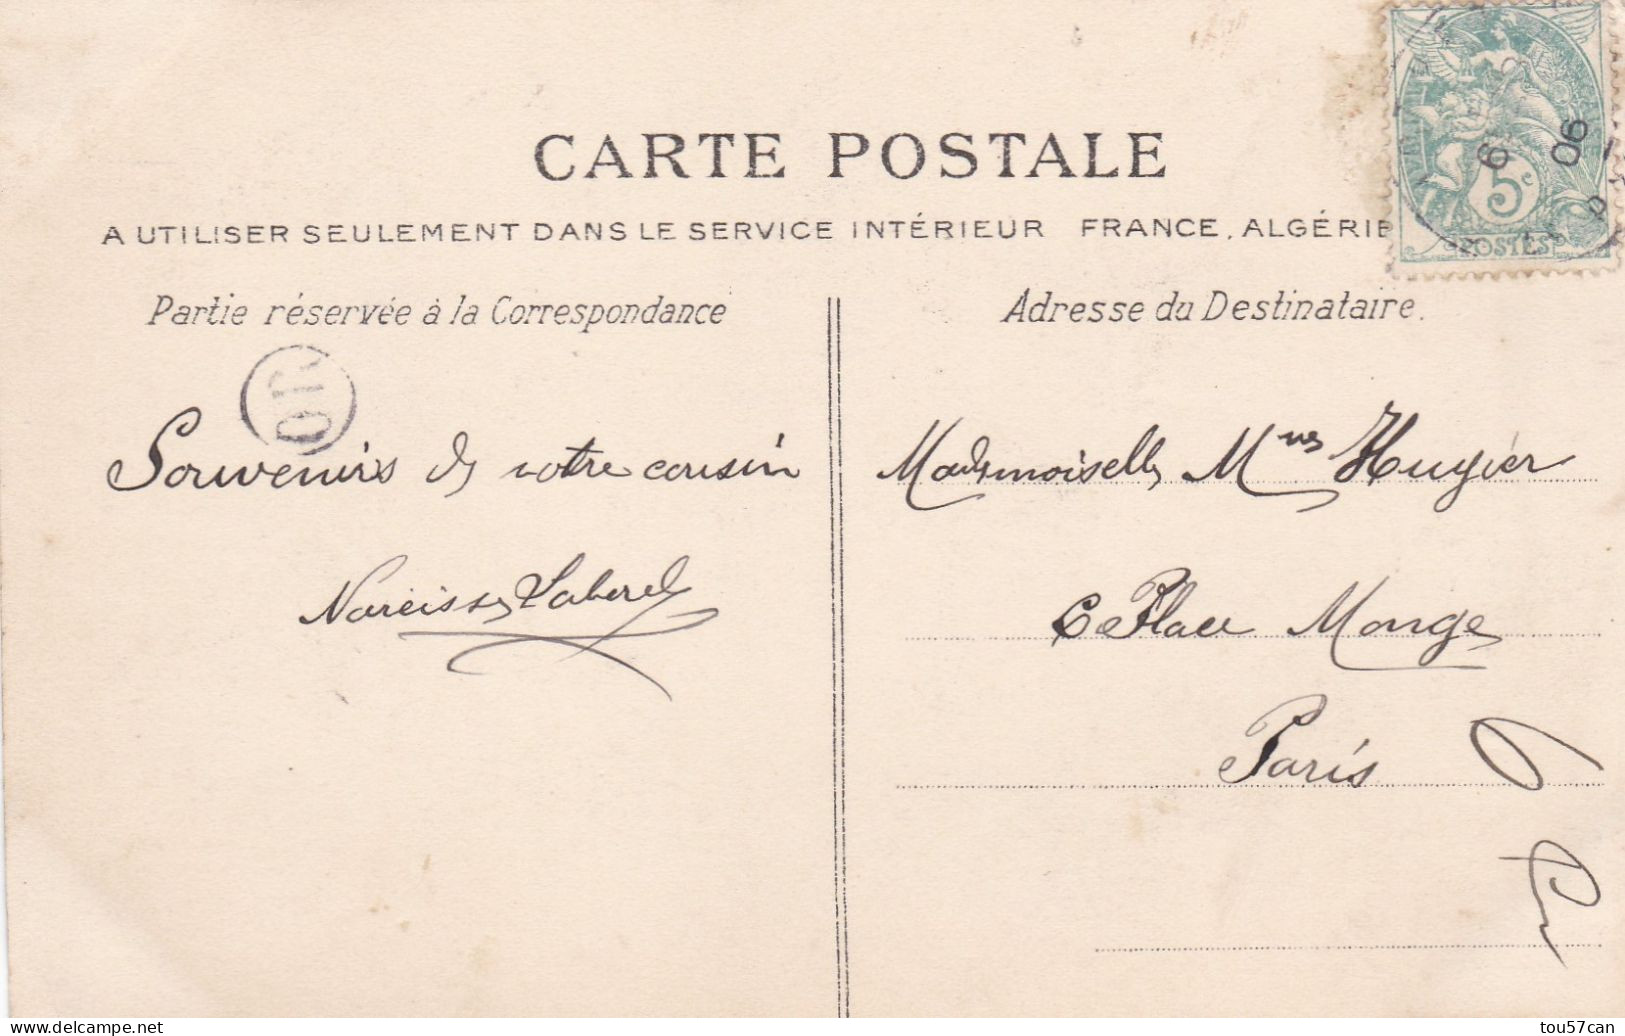 CARTE POSTALE
A UTILISER SEULEMENT DANS LE SERVICE INTÉRIEUR FRANCE, ALGÉRIE
Partie réservée à la Correspondance
Adresse du Destinataire.
Souvenirs de votre cousin
Narcisse
Mademoiselle Hugier
6 Place Monge
Paris
5c
POSTES
6
06
OR
delcampe.net
tou57can